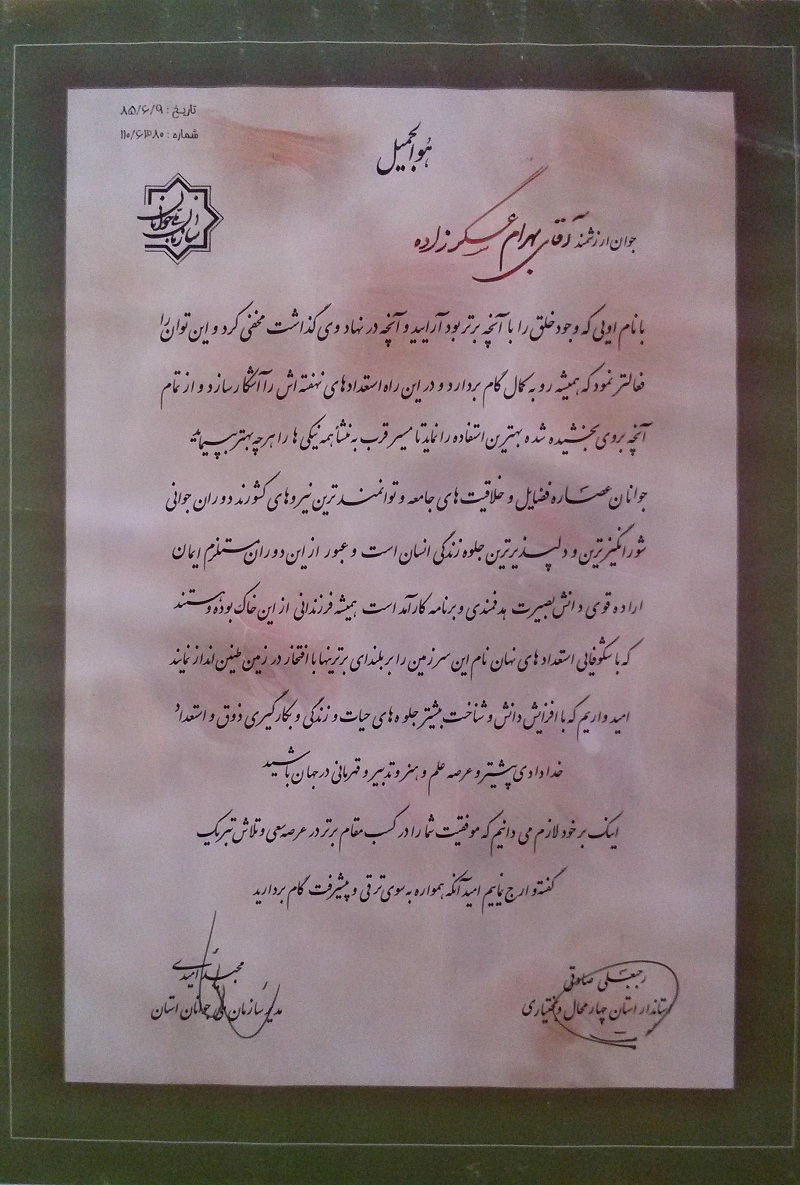 تاریخ : ۸۵/۶/۹
شماره : ۱۱۰/۶۳۸۰
هوالجمیل
سازمان ملی جوانان
جوان ارزشمند آقای بهرام عسکرزاده
با نام اویی که وجود خلق را با آنچه برتر بود آرایید و آنچه در نهاد وی گذاشت مخفی کرد و این توان را
فعالتر نمود که همیشه رو به کمال گام بردارد و در این راه استعدادهای نهفته اش را آشکار سازد و از تمام
آنچه بر وی بخشیده شده بهترین استفاده را نماید تا مسیر قرب به منشأ همه نیکی ها را هرچه بهتر بپیماید
جوانان عصاره فضایل و خلاقیت های جامعه و توانمندترین نیروهای کشورند دوران جوانی
شورانگیزترین و دلپذیرترین جلوه زندگی انسان است و عبور از این دوران مستلزم ایمان
اراده قوی دانش بصیرت هدفمندی و برنامه کارآمد است همیشه فرزندانی از این خاک بوده و هستند
که با شکوفایی استعدادهای نهان نام این سرزمین را بر بلندای برترینها با افتخار در زمین طنین انداز نمایند
امید واریم که با افزایش دانش و شناخت بیشتر جلوه های حیات و زندگی و بکارگیری ذوق و استعداد
خدادادی پیشرو عرصه علم و هنر و تدبیر و قهرمانی در جهان باشید
اینک بر خود لازم می دانیم که موفقیت شما را در کسب مقام برتر در عرصه سعی و تلاش تبریک
گفته و ارج نهاییم امید آنکه همواره به سوی ترقی و پیشرفت گام بردارید
رجبعلی صادقی
استاندار استان چهارمحال و بختیاری
مجید امیدی
مدیر سازمان ملی جوانان استان